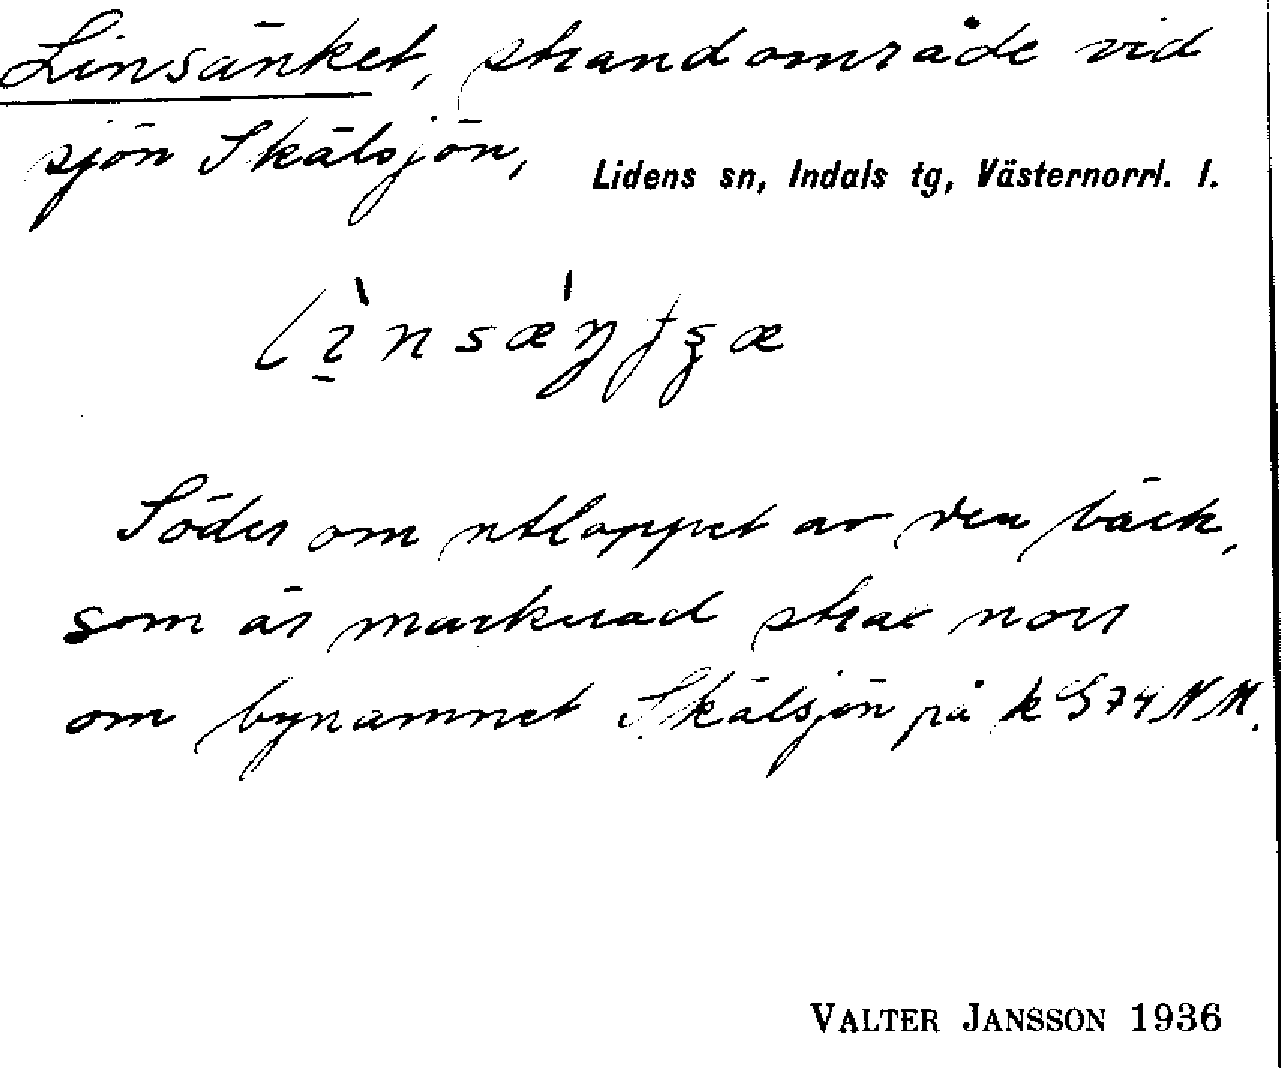 Linsänket, strandområde vid
sjön Skälsjön,
Lidens sn, Indals tg, Västernorrl. l.
Söder om utloppet av den bäck,
som är markerad strax norr
om bynamnet Skälsjön på k G 74 NM.
VALTER JANSSON 1936